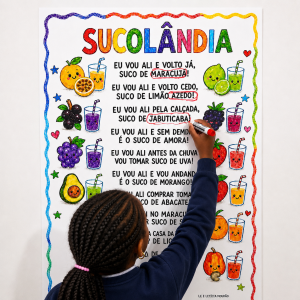 SUCOLÂNDIA
EU VOU ALI E VOLTO JÁ,
SUCO DE MARACUJÁ!
EU VOU ALI E VOLTO CEDO,
SUCO DE LIMÃO AZEDO!
EU VOU ALI PELA CALÇADA,
SUCO DE JABUTICABA!
EU VOU ALI E SEM DEM
É O SUCO DE AMORA!
EU VOU ALI ANTES DA CHUVA
VOU TOMAR SUCO DE UVA!
EU VOU ALI E VOU ANDAND
É O SUCO DE MORANGO!
ALI COMPRAR TOMA
SUCO DE ABACATE
NO MARACU
CASA DA
DE